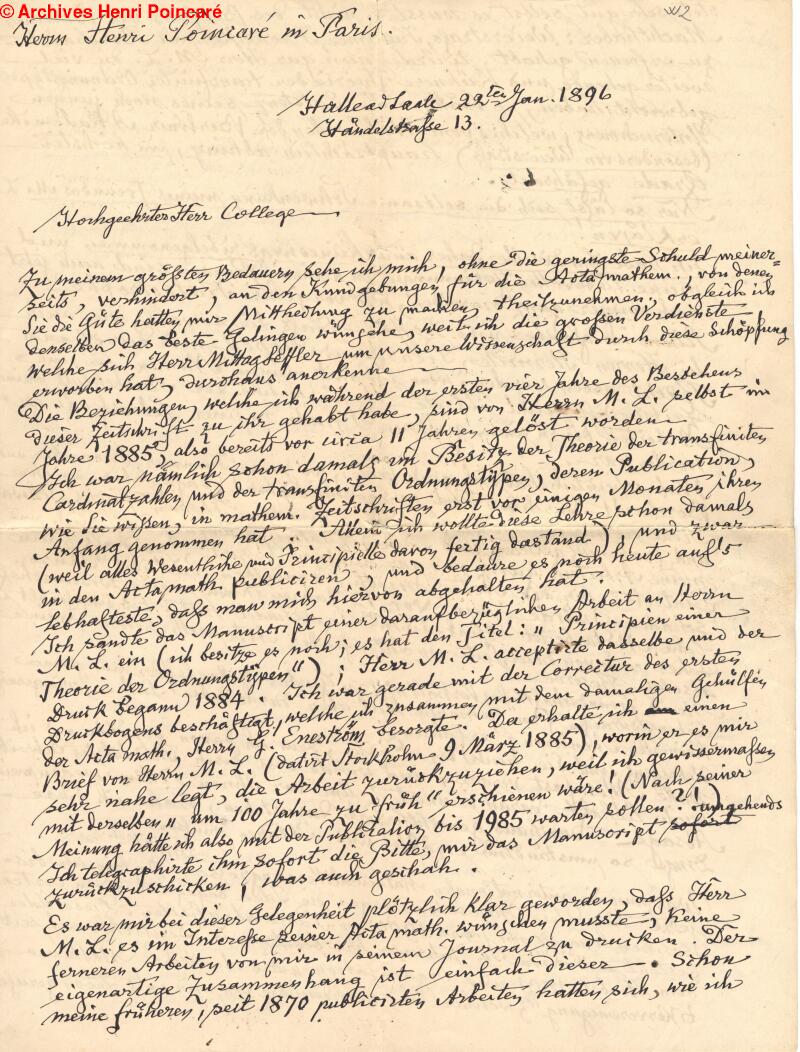 © Archives Henri Poincaré
W2
Herrn Henri Poincaré in Paris.
Halle a d Saale 22ten Jan. 1896
Händelstrasse 13.
Hochgeehrter Herr College
Zu meinem größten Bedauern sehe ich mich, ohne die geringste Schuld meiner-
seits, verhindert, an den Kundgebungen für die Acta mathem., von denen
Sie die Güte hatten mir Mittheilung zu machen, theilzunehmen, obgleich ich
denselben das beste Gelingen wünsche, weil ich die grossen Verdienste
welche sich Herr Mittag Leffler um unsere Wissenschaft durch diese Schöpfung
erworben hat, durchaus anerkenne
Die Beziehungen, welche ich während der ersten vier Jahre des Bestehens
dieser Zeitschrift zu ihr gehabt habe, sind von Herrn M. L. selbst im
Jahre 1885, also bereits vor circa 11 Jahren gelöst worden
Ich war nämlich schon damals im Besitz der Theorie der transfiniten
Cardinalzahlen und der transfiniten Ordnungstypen, deren Publication,
wie Sie wissen, in mathem. Zeitschriften erst vor einigen Monaten ihren
Anfang genommen hat. Allein ich wollte diese Lehre schon damals
(weil alles Wesentliche und Principielle davon fertig dastand), und zwar
in den Acta math. publiciren, und bedaure es noch heute auf's
lebhafteste, daß man mich hiervon abgehalten hat.
Ich sandte das Manuscript einer daraufbezüglichen Arbeit an Herrn
M. L. ein (ich besitze es noch; es hat den Titel: „Principien einer
Theorie der Ordnungstypen"); Herr M. L. acceptirte dasselbe und der
Druck begann 1884. Ich war gerade mit der Correctur des ersten
Druckbogens beschäftigt, welche ich zusammen mit dem damaligen Gehülfen
der Acta math., Herrn G. Eneström besorgte. Da erhalte ich einen
Brief von Herrn M. L. (datirt Stockholm 9 März 1885), worin er es mir
sehr nahe legt, die Arbeit zurückzuziehen, weil ich gewissermassen
mit derselben „um 100 Jahre zu früh" erschienen wäre! (Nach seiner
Meinung hätte ich also mit der Publication bis 1985 warten sollen?!)
Ich telegraphirte ihm sofort die Bitte, mir das Manuscript sofort umgehends
zurückzuschicken, was auch geschah.
Es war mir bei dieser Gelegenheit plötzlich klar geworden, daß Herr
M. L. es im Interesse seiner Acta math. wünschen musste, keine
ferneren Arbeiten von mir in seinem Journal zu drucken. Der
eigenartige Zusammenhang ist einfach dieser. Schon
meine früheren, seit 1870 publicirten Arbeiten hatten sich, wie ich